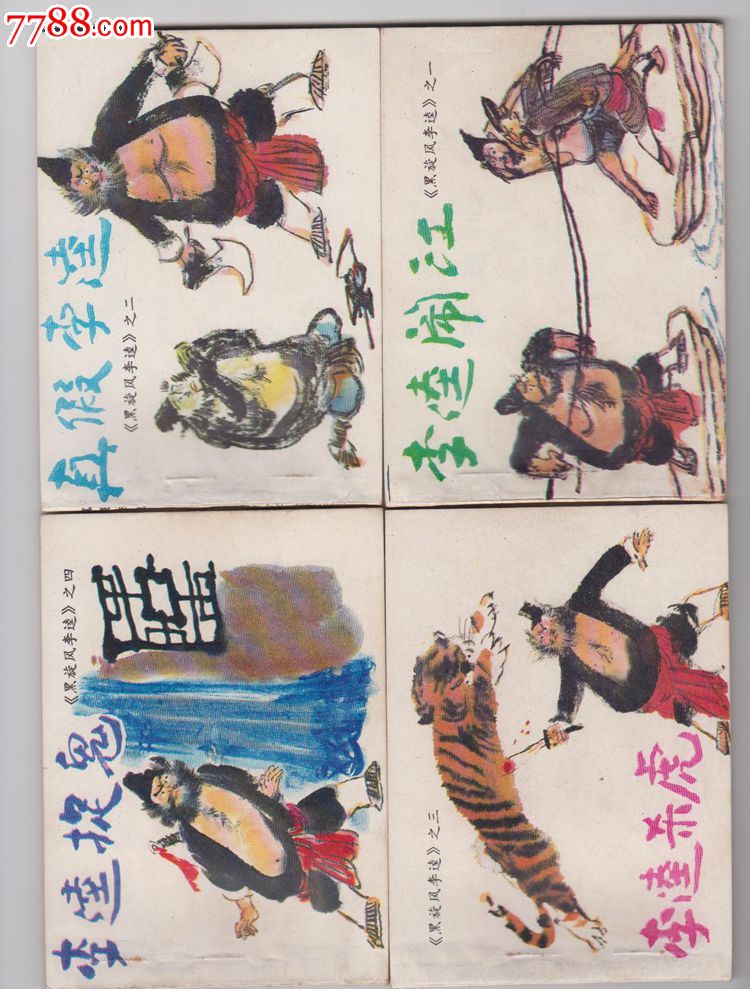 7788.com
真假李逵
《黑旋风李逵》之二
李逵闹江
《黑旋风李逵》之一
李逵捉鬼
《黑旋风李逵》之四
李逵杀虎
《黑旋风李逵》之三